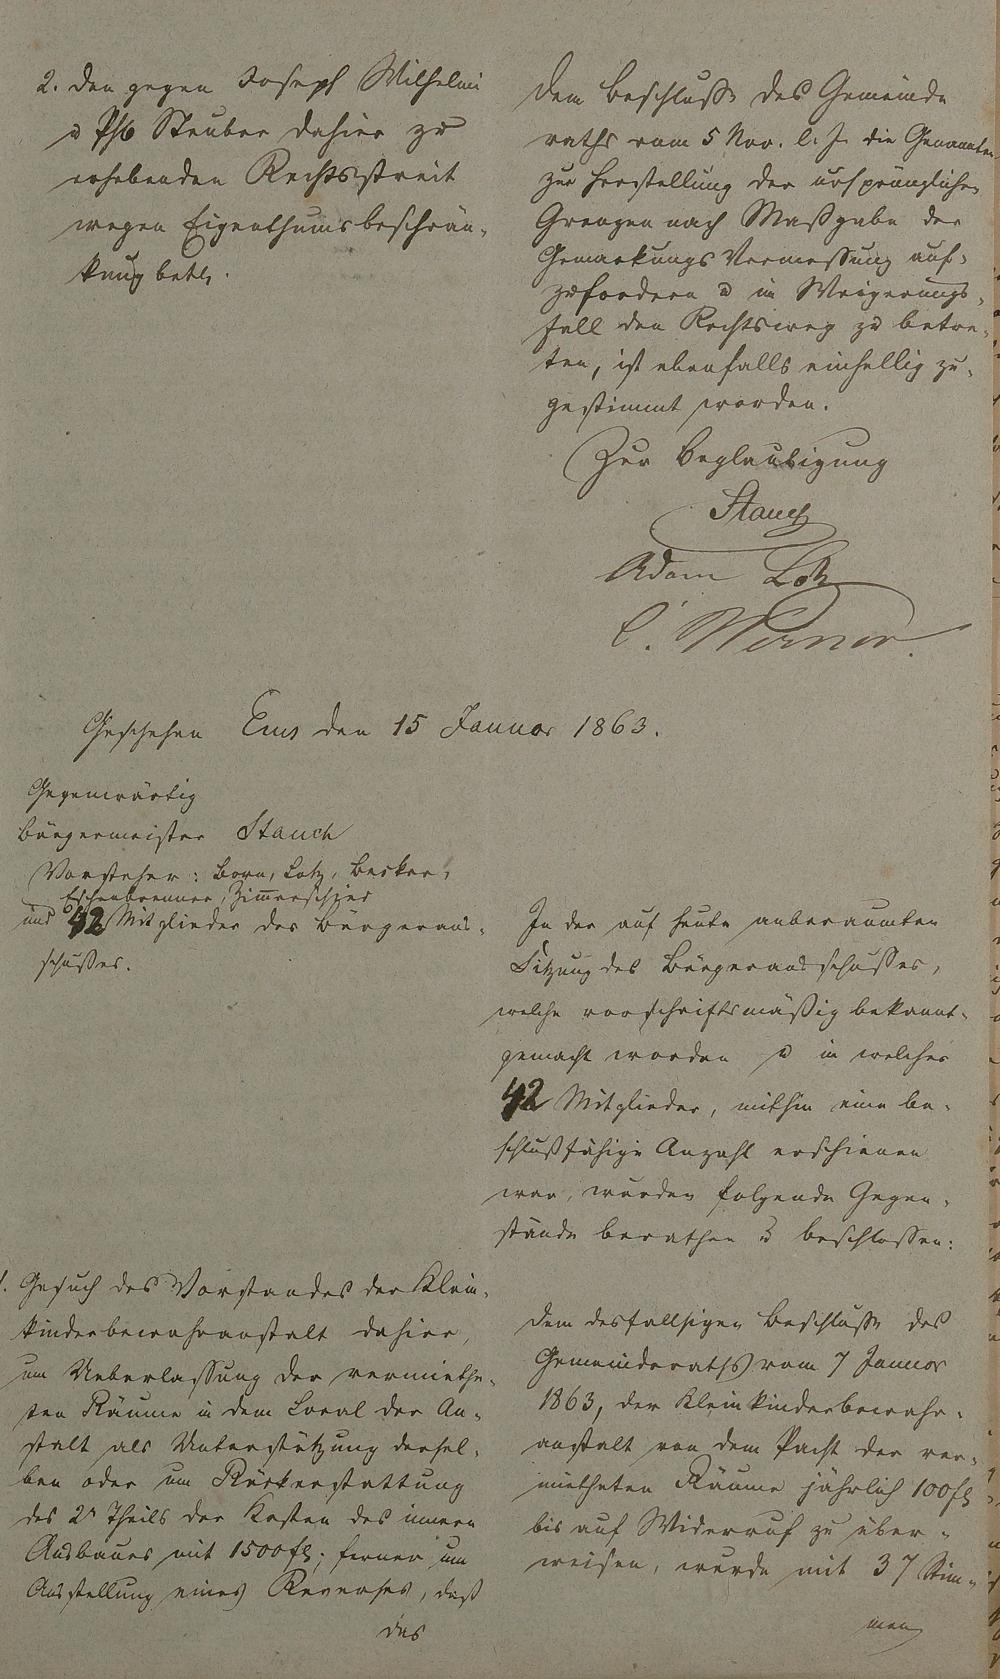 2. den gegen Joseph Wilhelmi
u Phb Steuber dahier zu
erhebenden Rechtsstreit
wegen Eigenthumsbeschrän-
kung betr.
Dem Beschlusse des Gemeinde
raths vom 5 Nov. l. J. die Genannten
zur Herstellung der ursprünglichen
Grenzen nach Maßgabe der
Gemarkungs Vermessung auf-
zufordern u im Weigerungs-
fall den Rechtsweg zu betre-
ten, ist ebenfalls einhellig zu-
gestimmt worden.
Zur Beglaubigung
Stauch
Adam Lotz
C. Werner.
Geschehen Ems den 15 Januar 1863.
Gegenwärtig
Bürgermeister Stauch
Vorsteher: Born, Lotz, Becker,
Eschenbrenner, Zimmerschied
und 42 Mitglieder des Bürgeraus-
schusses.
In der auf heute anberaumten
Sitzung des Bürgerausschusses,
welche vorschriftsmäßig bekannt-
gemacht worden u in welcher
42 Mitglieder, mithin eine be-
schlußfähige Anzahl erschienen
war, wurden folgende Gegen-
stände berathen u beschlossen:
1. Gesuch des Vorstandes der Klein-
kinderbewahranstalt dahier,
um Ueberlassung der vermiethe-
ten Räume in dem Local der An-
stalt als Unterstützung dersel-
ben oder um Rückerstattung
des 2n Theils der Kosten des innern
Ausbaues mit 1500 fl; ferner um
Ausstellung eines Reverses, daß
das
Dem desfallsigen Beschlusse des
Gemeinderaths vom 7 Januar
1863, der Kleinkinderbewahr-
anstalt von dem Pacht der ver-
mietheten Räume jährlich 100 fl
bis auf Widerruf zu über-
weisen, wurde mit 37 Stim-
men